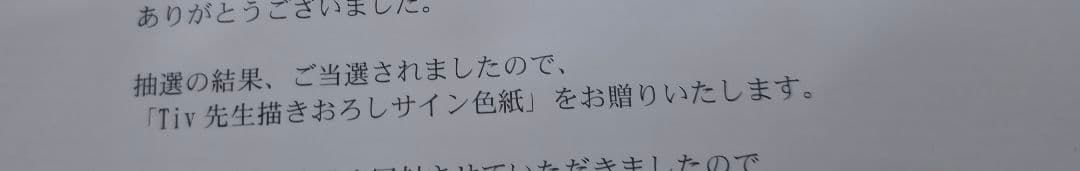 ありがとうございました。
抽選の結果、ご当選されましたので、
「Tiv 先生描きおろしサイン色紙」をお贈りいたします。
させていただきましたので